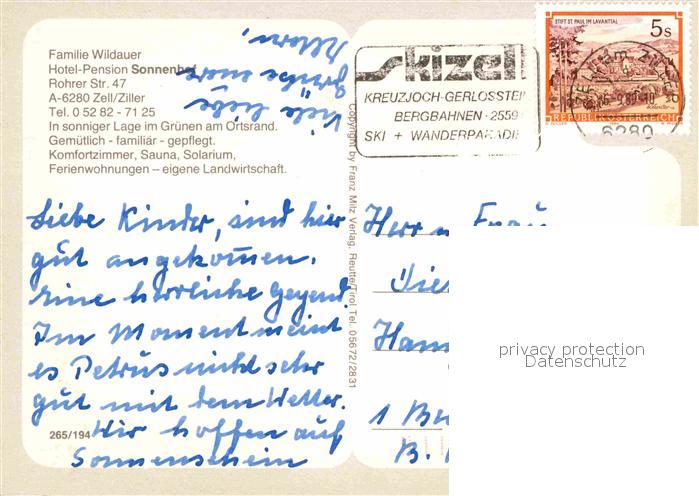 Familie Wildauer
Hotel-Pension Sonnenhof
Rohrer Str. 47
A-6280 Zell/Ziller
Tel. 0 52 82 - 71 25
In sonniger Lage im Grünen am Ortsrand.
Gemütlich - familiär - gepflegt.
Komfortzimmer, Sauna, Solarium,
Ferienwohnungen – eigene Landwirtschaft.
Liebe Kinder, sind hier
gut angekommen.
Eine herrliche Gegend.
Im Moment meint
es Petrus nicht sehr
gut mit dem Wetter.
Wir hoffen auf
Sonnenschein
Viele liebe
Grüsse
Eltern
265/194
Copyright by Franz Milz Verlag, Reutte/Tirol Tel. 05672/2831
skizell
KREUZJOCH-GERLOSSTEI
BERGBAHNEN · 2559
SKI + WANDERPARADIE
STIFT ST. PAUL IM LAVANTTAL
5s
REPUBLIK ÖSTERREICH
6280
Herr u. Frau
1
B.
privacy protection
Datenschutz